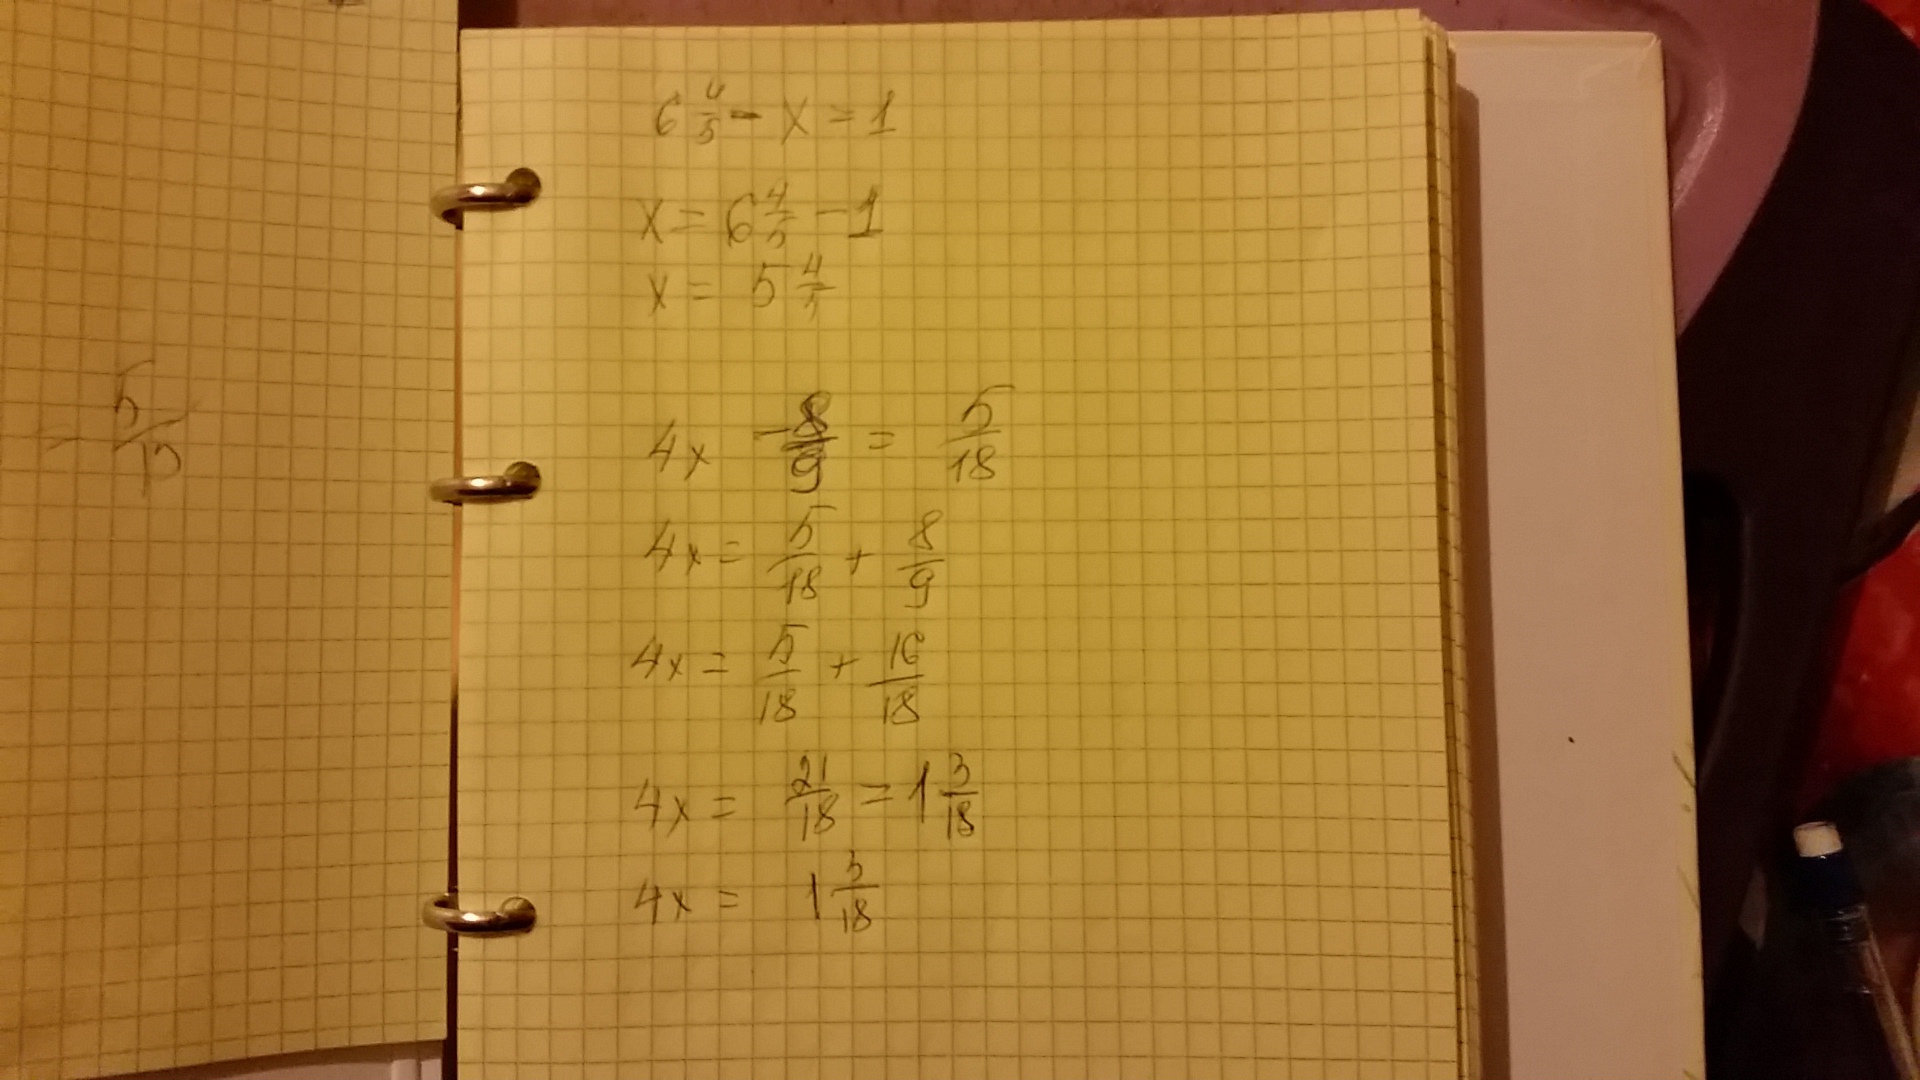 6 4/5 - x = 1
x = 6 4/5 - 1
x = 5 4/5
4x - 8/9 = 5/18
4x = 5/18 + 8/9
4x = 5/18 + 16/18
4x = 21/18 = 1 3/18
4x = 1 3/18